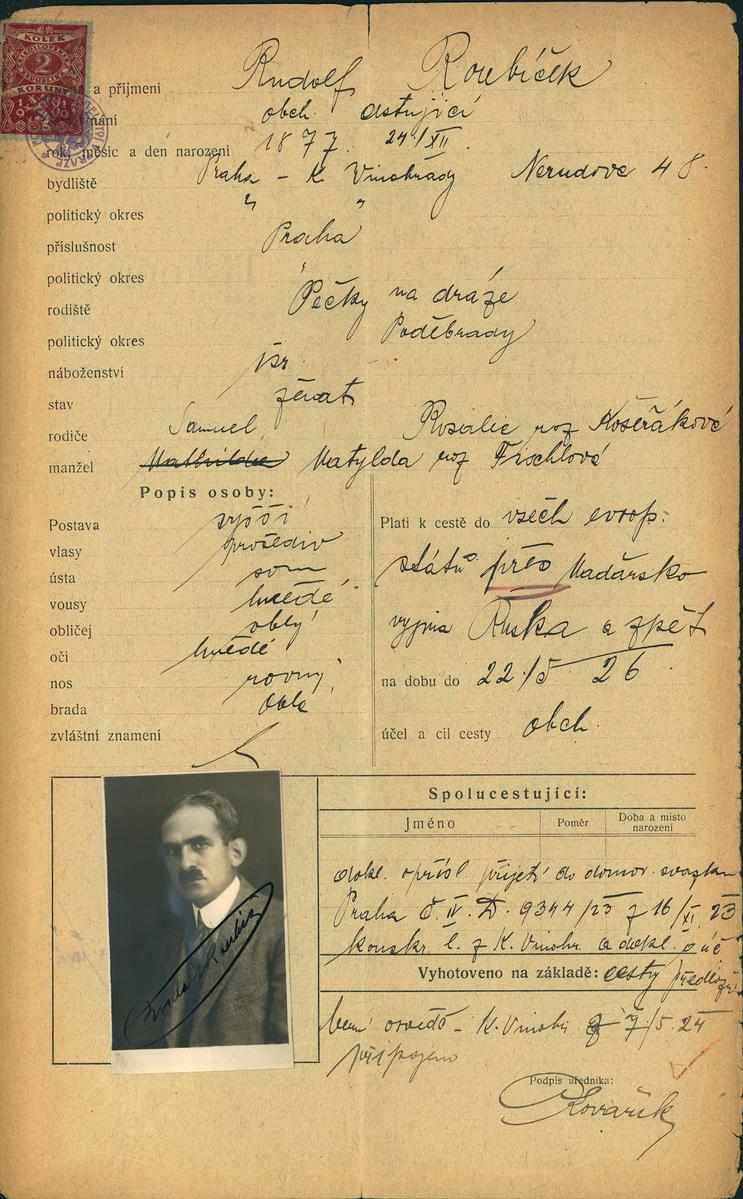 KOLEK
2
KORUNY
a příjmení Rudolf Roubíček
obch. cestující
rok, měsíc a den narození 1877. 24./XII.
bydliště Praha - K. Vinohrady Nerudova 48.
politický okres " "
příslušnost Praha
politický okres "
rodiště Pečky na dráze
politický okres Poděbrady
náboženství isr.
stav ženat
rodiče Samuel, Rosalie roz Košeřáková
manžel Mathilda Matylda roz Fröchlová
Popis osoby:
Postava vyšší
vlasy prošediv
ústa soum
vousy hnědé
obličej oblý
oči hnědé
nos rovný
brada oblá
zvláštní znamení
Platí k cestě do všech evrop.
států přes Maďarsko
vyjma Ruska a zpět
na dobu do 22/5 26
účel a cíl cesty obch.
Spolucestující:
Jméno Poměr Doba a místo narození
dokl. o přísl. přijetí do domov. svazku
Praha č. IV. D. 9344/23 z 16/XI. 23
konskr. l. z K. Vinohr. a dokl. o úč
Vyhotoveno na základě: cesty předlož
bern. osvěd - K. Vinohr. z 7/5. 24
připojeno
Podpis úředníka:
Kovařík
Rudolf Roubíček